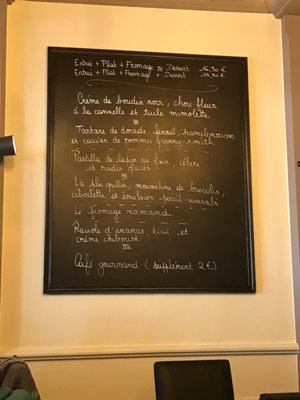 Entrée + Plat + Fromage ou Dessert 16,90 €
Entrée + Plat + Fromage + Dessert 19,90 €
Crème de boudin noir, chou-fleur
à la cannelle et tuile mimolette
ou
Tartare de dorade, fenouil, pamplemousse
et caviar de pommes granny-smith
Pastilla de lapin au foin, céleri
et radis glacés
ou
La plie grillée, mousseline de brocolis,
ciboulette et émulsion persil-wasabi
Le fromage normand
Raviole d'ananas, kiwi et
crème chiboust
ou
Café gourmand (supplément 2 €)